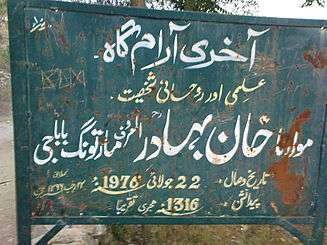 آخری آرام گاہ
علمی اور روحانی شخصیت
مولانا خان بہادر المعروف مارتونگ باباجی
تاریخ وصال 22 جولائی 1976ء
پیدائش 1316 ہجری تقریبا